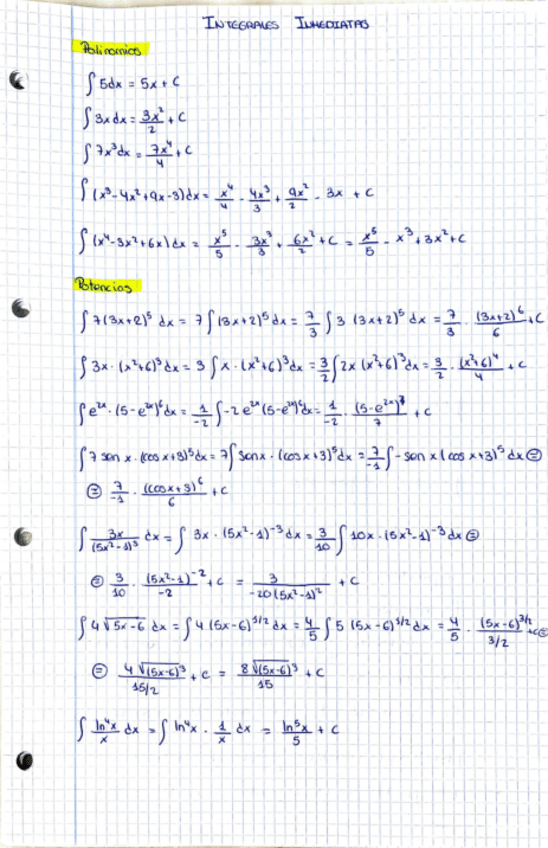 INTEGRALES INMEDIATAS
Polinomios
∫ 5dx = 5x + C
∫ 3x dx = 3x²/2 + C
∫ 7x³dx = 7x⁴/4 + C
∫ (x³-4x²+9x-3)dx = x⁴/4 - 4x³/3 + 9x²/2 - 3x + C
∫ (x⁴-3x²+6x)dx = x⁵/5 - 3x³/3 + 6x²/2 + C = x⁵/5 - x³ + 3x² + C
Potencias
∫ 7(3x+2)⁵ dx = 7∫(3x+2)⁵dx = 7/3 ∫ 3 (3x+2)⁵ dx = 7/3 · (3x+2)⁶/6 + C
∫ 3x·(x²+6)³dx = 3∫x·(x²+6)³dx = 3/2 ∫2x (x²+6)³dx = 3/2 · (x²+6)⁴/4 + C
∫e²ˣ·(5-e²ˣ)⁶dx = 1/-2 ∫-2e²ˣ(5-e²ˣ)⁶dx = 1/-2 · (5-e²ˣ)⁷/7 + C
∫7 sen x·(cos x+3)⁵dx = 7∫senx·(cosx+3)⁵dx = 7/-1 ∫-sen x(cos x+3)⁵dx =
= 7/-1 · (cosx+3)⁶/6 + C
∫ 3x/(5x²-1)³ dx = ∫ 3x·(5x²-1)⁻³dx = 3/10 ∫ 10x·(5x²-1)⁻³dx =
= 3/10 · (5x²-1)⁻²/-2 + C = 3/-20(5x²-1)² + C
∫4√5x-6 dx = ∫4(5x-6)^1/2 dx = 4/5 ∫5 (5x-6)^1/2 dx = 4/5 · (5x-6)^3/2/3/2 + C =
= 4√(5x-6)³/15/2 + C = 8√(5x-6)³/15 + C
∫ ln⁴x/x dx = ∫ ln⁴x · 1/x dx = ln⁵x/5 + C